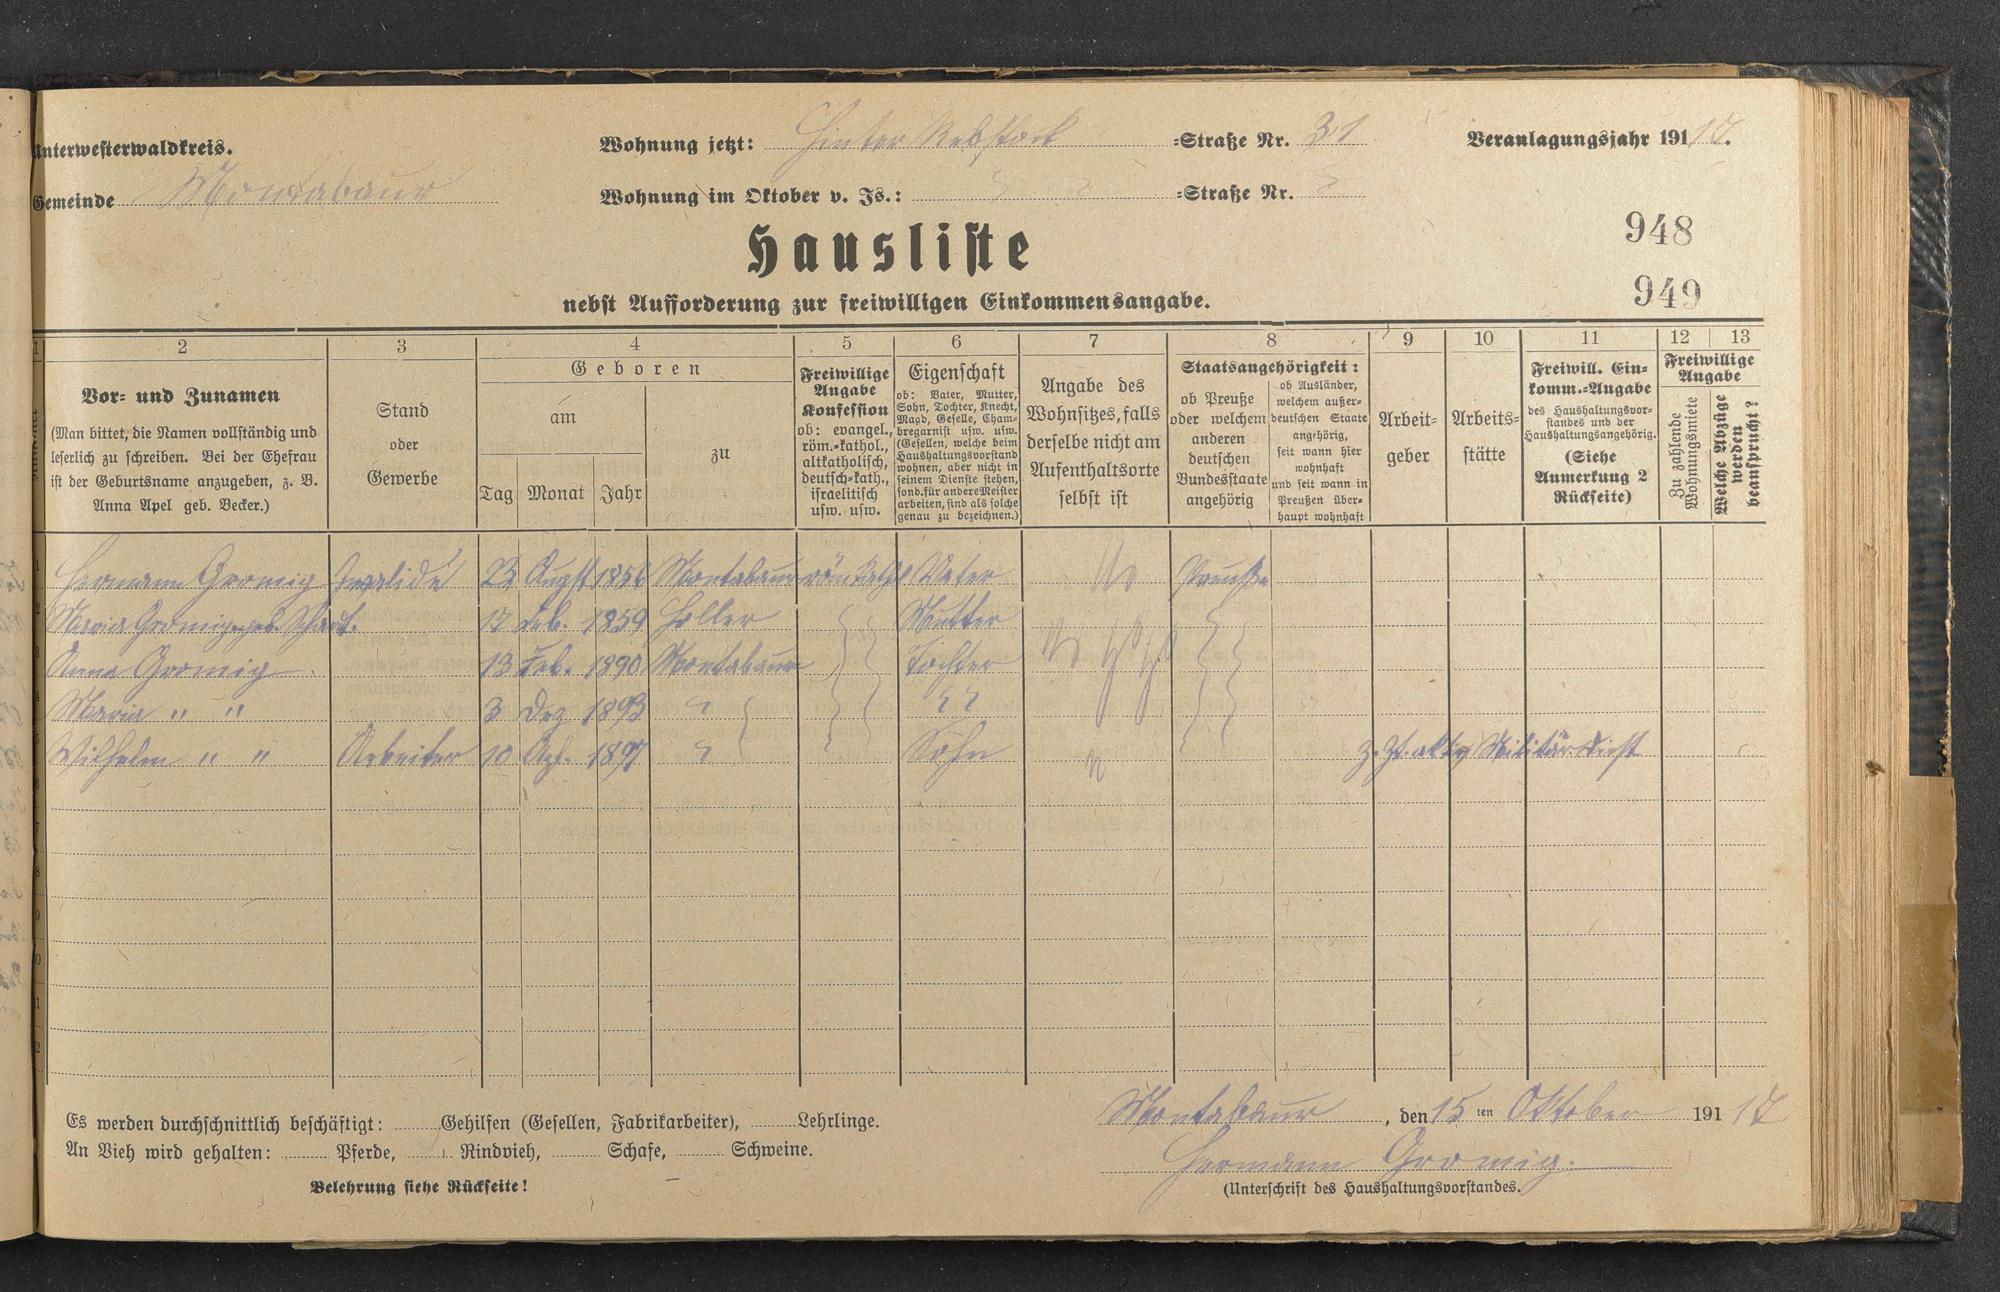 Unterwesterwaldkreis.
Wohnung jetzt: Hinter Rebstock =Straße Nr. 31
Veranlagungsjahr 191 17.
Gemeinde Montabaur
Wohnung im Oktober v. Js.: =Straße Nr.
Hausliste
nebst Aufforderung zur freiwilligen Einkommensangabe.
948
949
1 2 3 4 5 6 7 8 9 10 11 12 13
Vor- und Zunamen
(Man bittet, die Namen vollständig und
leserlich zu schreiben. Bei der Ehefrau
ist der Geburtsname anzugeben, z. B.
Anna Apel geb. Becker.)
Stand
oder
Gewerbe
Geboren
am
Tag Monat Jahr
zu
Freiwillige
Angabe
Konfession
ob: evangel.,
röm.-kathol.,
altkatholisch,
deutsch-kath.,
israelitisch
usw. usw.
Eigenschaft
ob: Vater, Mutter,
Sohn, Tochter, Knecht,
Magd, Geselle, Cham-
bregarnist usw. usw.
(Gesellen, welche beim
Haushaltungsvorstand
wohnen, aber nicht in
seinem Dienste stehen,
sond. für andere Meister
arbeiten, sind als solche
genau zu bezeichnen.)
Angabe des
Wohnsitzes, falls
derselbe nicht am
Aufenthaltsorte
selbst ist
Staatsangehörigkeit:
ob Preuße
oder welchem
anderen
deutschen
Bundesstaate
angehörig
ob Ausländer,
welchem außer-
deutschen Staate
angehörig,
seit wann hier
wohnhaft
und seit wann in
Preußen über-
haupt wohnhaft
Arbeit-
geber
Arbeits-
stätte
Freiwill. Ein-
komm.-Angabe
des Haushaltungsvor-
standes und der
Haushaltungsangehörig.
(Siehe
Anmerkung 2
Rückseite)
Freiwillige
Angabe
Zu zahlende
Wohnungsmiete
Welche Abzüge
werden
beansprucht?
Hermann Gromig Invalide 23 August 1856 Montabaur röm kathl Vater Preuße
Maria Gromig geb. Schaut. 17 Feb. 1859 Holler Mutter
Anna Gromig 13 Feb. 1890 Montabaur Tochter
Maria " " 3 Dez 1893 " "
Wilhelm " " Arbeiter 10 Apl. 1897 " Sohn z. Zt. aktiv Militär. Dienst
Es werden durchschnittlich beschäftigt: Gehilfen (Gesellen, Fabrikarbeiter), Lehrlinge.
An Vieh wird gehalten: Pferde, Rindvieh, Schafe, Schweine.
Belehrung siehe Rückseite!
Montabaur, den 15 ten Oktober 191 17
Hermann Gromig.
(Unterschrift des Haushaltungsvorstandes.